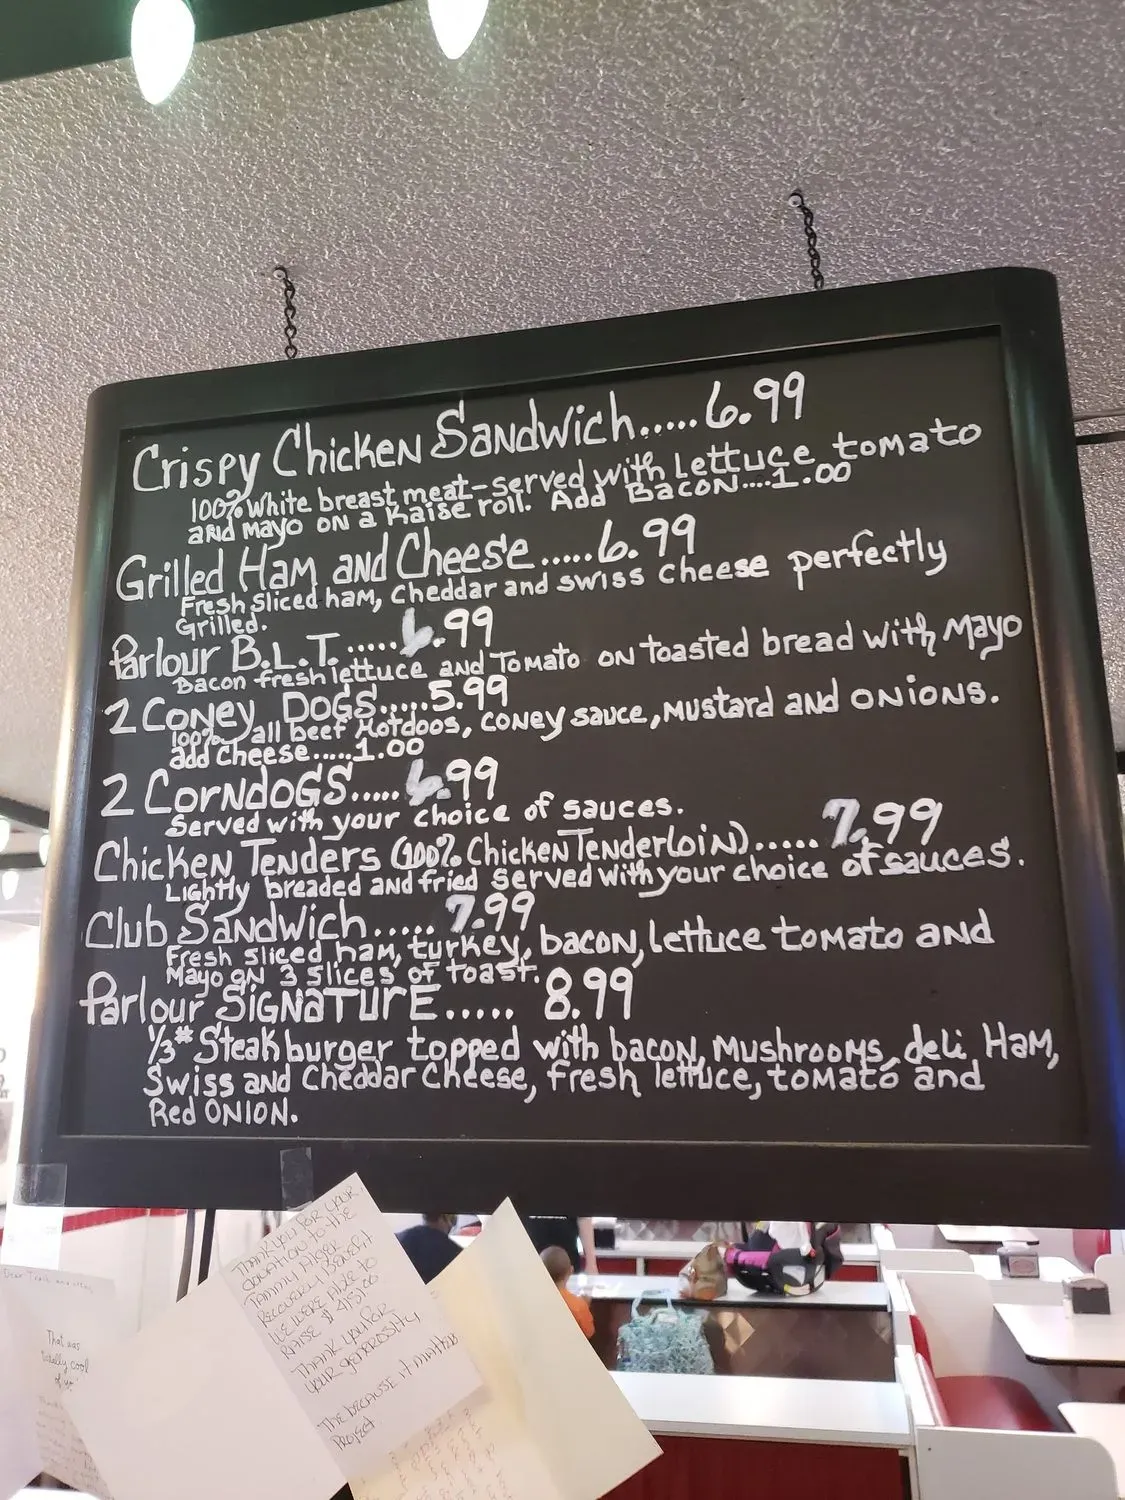 Crispy Chicken Sandwich.....6.99
100% White breast meat-served with lettuce tomato
and mayo on a Kaise roll. Add Bacon....1.00
Grilled Ham and Cheese.....6.99
Fresh sliced ham, cheddar and swiss cheese perfectly
Grilled.
Parlour B.L.T.....6.99
Bacon fresh lettuce and Tomato on toasted bread with Mayo
2 Coney Dogs.....5.99
100% all beef Hotdoos, coney sauce, Mustard and onions.
add cheese.....1.00
2 Corndogs.....6.99
Served with your choice of sauces.
Chicken Tenders (100% Chicken Tenderloin).....7.99
Lightly breaded and fried served with your choice of sauces.
Club Sandwich.....7.99
Fresh sliced ham, turkey, bacon, lettuce tomato and
Mayo on 3 slices of toast.
Parlour Signature.....8.99
1/3# Steakburger topped with bacon, Mushrooms, deli Ham,
Swiss and Cheddar Cheese, fresh lettuce, tomato and
Red Onion.
Thank you for your
donation to the
Tammy
Recovery Benefit
We were able to
raise $
Thank you for
your generosity
The because it matters
Project
That was
totally cool
of